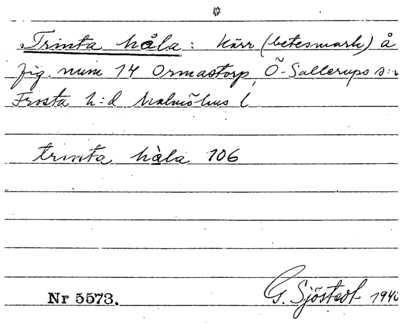 Trinta håla: Kärr (betesmark) å
fig. num 14 Ormastorp, Ö. Sallerups s:n
Frosta h:d Malmöhus l
trinta håla 106
Nr 5573. G. Sjöstedt 1940